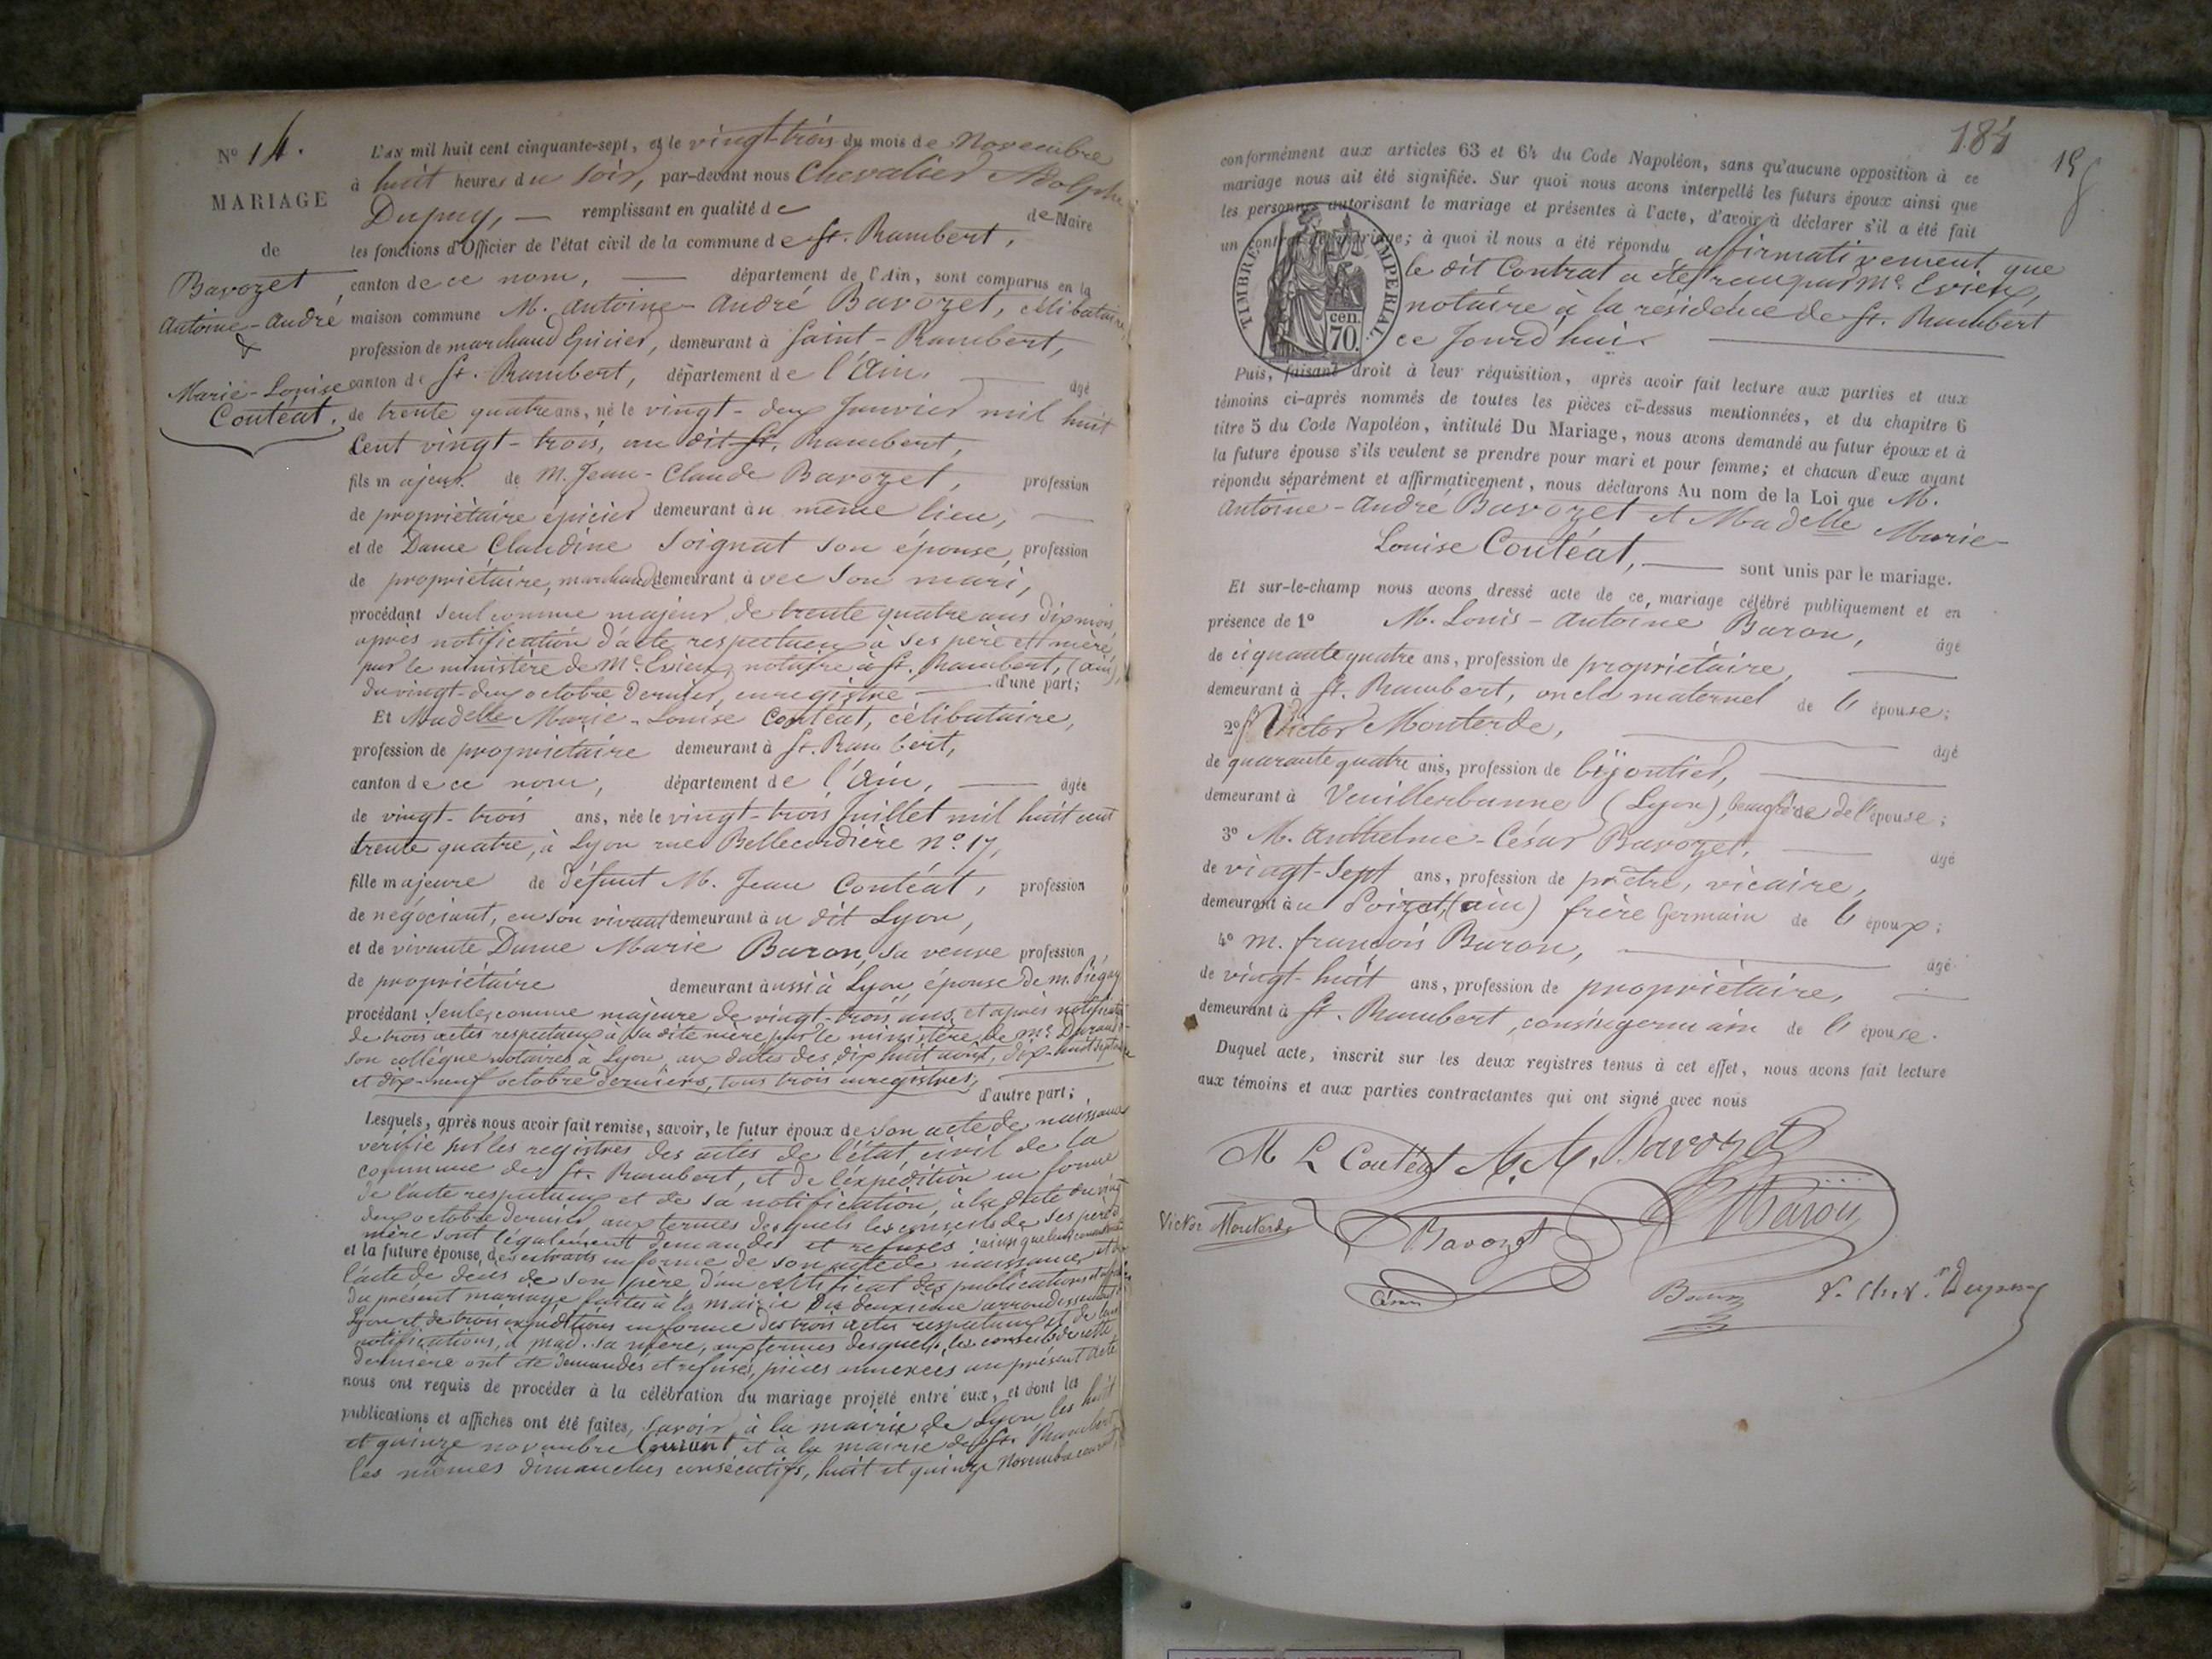 N° 14.
MARIAGE
de
Bavozet
Antoine-André
&
Marie-Louise
Coutéat.
L'an mil huit cent cinquante-sept, et le vingt-trois du mois de Novembre
à huit heures du soir, par-devant nous Chevalier Adolphe
Dupuy, — remplissant en qualité de de Maire
les fonctions d'Officier de l'état civil de la commune de St. Rambert,
canton de ce nom, — département de l'Ain, sont comparus en la
maison commune M. Antoine-André Bavozet, célibataire,
profession de marchand Epicier, demeurant à Saint-Rambert,
canton de St. Rambert, département de l'Ain. — âgé
de trente quatre ans, né le vingt-deux Janvier mil huit
Cent vingt-trois, au dit St. Rambert,
fils majeur de M. Jean-Claude Bavozet, profession
de propriétaire épicier demeurant au même lieu, —
et de Dame Claudine Soignat son épouse, profession
de propriétaire, marchand demeurant avec son mari,
procédant seul comme majeur de trente quatre ans dix mois
après notification d'acte respectueux à ses père et mère,
par le ministère de Me. Evieux, notaire à St. Rambert, (ain),
du vingt-deux octobre dernier, enregistré — d'une part;
Et Madelle Marie-Louise Coutéat, célibataire,
profession de propriétaire demeurant à St. Rambert,
canton de ce nom, département de l'Ain, — âgée
de vingt-trois ans, née le vingt-trois Juillet mil huit cent
trente quatre, à Lyon rue Bellecordière n°. 17,
fille majeure de défunt M. Jean Coutéat, profession
de négociant, en son vivant demeurant au dit Lyon,
et de vivante Dame Marie Baron, sa veuve profession
de propriétaire demeurant aussi à Lyon, épouse de m. Piégay
procédant seule, comme majeure de vingt-trois ans, et après notification
de trois actes respectueux à sa dite mère, par le ministère de Me. Durand
son collègue notaires à Lyon, aux dates des dix huit août, dix-huit septembre
et dix-neuf octobre derniers, tous trois enregistrés,
d'autre part;
Lesquels, après nous avoir fait remise, savoir, le futur époux de son acte de naissance
vérifié sur les registres des actes de l'état civil de la
commune de St. Rambert, et de l'expédition en forme
de l'acte respectueux et de sa notification, à la date du vingt
deux octobre dernier, aux termes desquels les conseils de ses père et
mère sont légalement demandés et refusés
et la future épouse, des extraits en forme de son acte de naissance, et de
l'acte de décès de son père, d'un certificat des publications et affiches
du présent mariage faites à la mairie du deuxième arrondissement de
Lyon et de trois expéditions en forme des trois actes respectueux et de leurs
notifications, à mad. sa mère, aux termes desquels les conseils de cette
dernière ont été demandés et refusés, pièces annexées au présent acte
nous ont requis de procéder à la célébration du mariage projeté entre eux, et dont les
publications et affiches ont été faites, savoir, à la mairie de Lyon les huit
et quinze novembre Courant et à la mairie de St. Rambert
les mêmes dimanches consécutifs, huit et quinze Novembre courant,
184
conformément aux articles 63 et 64 du Code Napoléon, sans qu'aucune opposition à ce
mariage nous ait été signifiée. Sur quoi nous avons interpellé les futurs époux ainsi que
les personnes autorisant le mariage et présentes à l'acte, d'avoir à déclarer s'il a été fait
un contrat de mariage; à quoi il nous a été répondu affirmativement que
le dit Contrat a été reçu par Me. Evieux,
notaire à la résidence de St. Rambert
ce Jourd'hui. —
TIMBRE IMPERIAL.
70. cen.
Puis, faisant droit à leur réquisition, après avoir fait lecture aux parties et aux
témoins ci-après nommés de toutes les pièces ci-dessus mentionnées, et du chapitre 6
titre 5 du Code Napoléon, intitulé Du Mariage, nous avons demandé au futur époux et à
la future épouse s'ils veulent se prendre pour mari et pour femme; et chacun d'eux ayant
répondu séparément et affirmativement, nous déclarons Au nom de la Loi que M.
Antoine-André Bavozet et Madelle Marie-
Louise Coutéat, — sont unis par le mariage.
Et sur-le-champ nous avons dressé acte de ce mariage célébré publiquement et en
présence de 1° M. Louis-Antoine Baron, âgé
de ciquante quatre ans, profession de propriétaire, —
demeurant à St. Rambert, oncle maternel de l'épouse;
2° Victor Monterde, — âgé
de quarante quatre ans, profession de bijoutier, —
demeurant à Veuillerbanne (Lyon), beau frère de l'épouse;
3° M. Anthelme-César Bavozet, — âgé
de vingt-sept ans, profession de prêtre, vicaire,
demeurant au Poizat, (ain) frère Germain de l'époux;
4° M. françois Baron, — âgé
de vingt-huit ans, profession de propriétaire, —
demeurant à St. Rambert, cousin germain de l'épouse.
Duquel acte, inscrit sur les deux registres tenus à cet effet, nous avons fait lecture
aux témoins et aux parties contractantes qui ont signé avec nous
M L Coutéat A. A. Bavozet
Victor Monterde Bavozet Baron
César Baron Chev. Dupuy